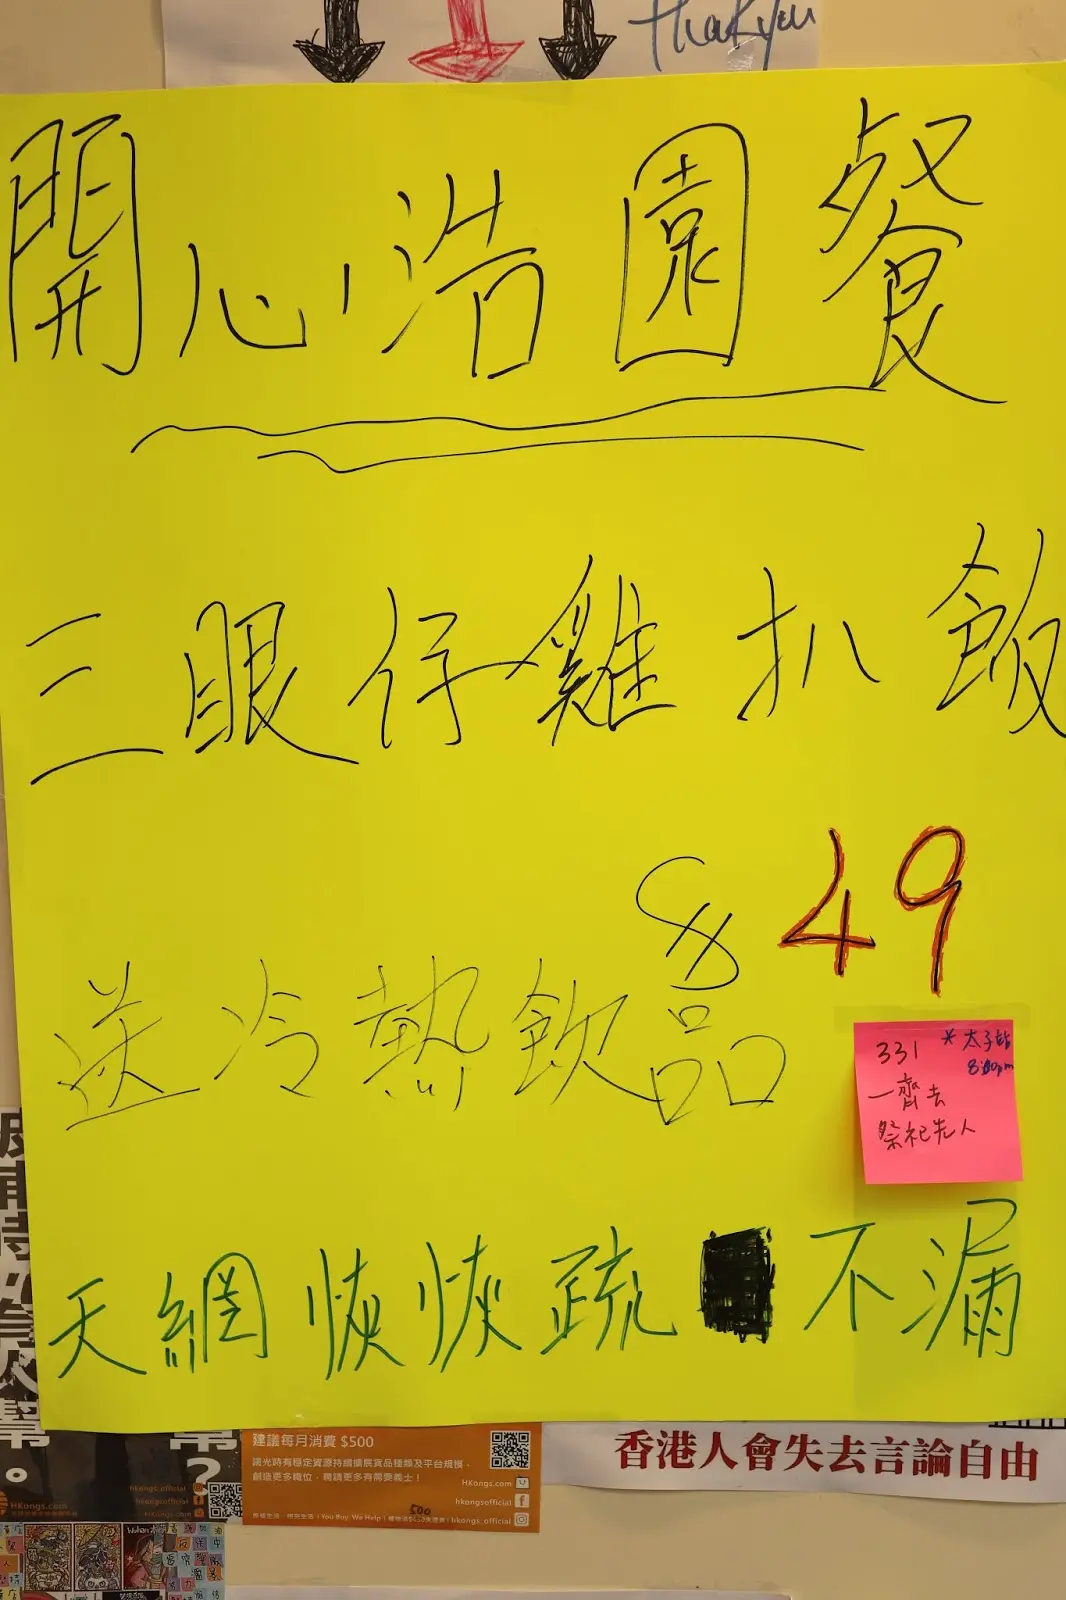 thankyou
開心浩園餐
三眼仔雞扒飯
$49
送冷熱飲品
331 *太子站
8:00pm
一齊去
祭祀先人
天網恢恢疏 不漏
建議每月消費 $500
HKongs.com
hkongsofficial
hkongs_official
香港人會失去言論自由
幫。
幫?
hkongsofficial
hkongs_official
HKongs.com
500